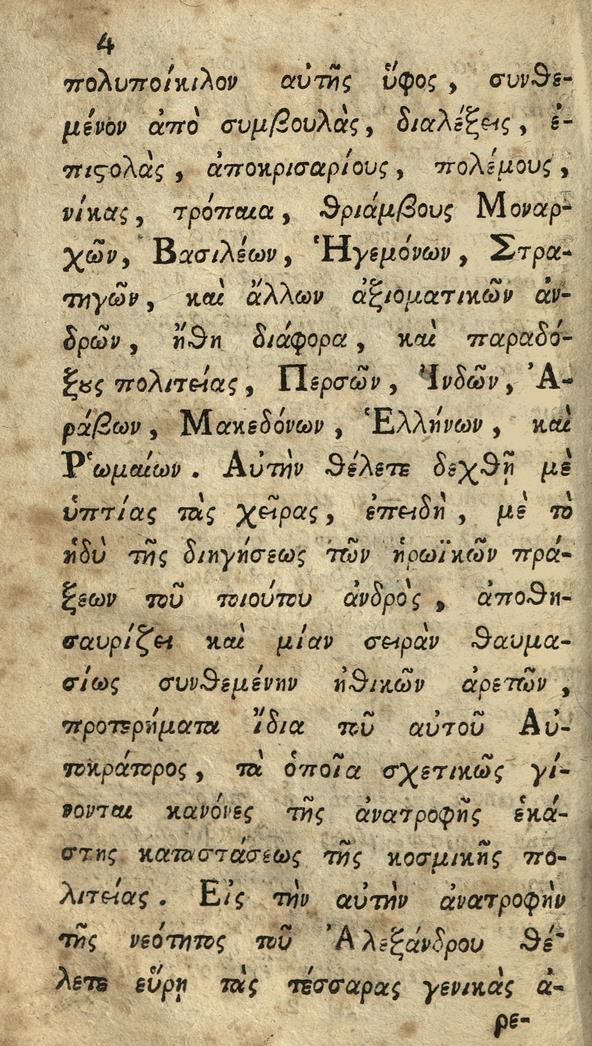 4
πολυποίκιλον αὐτῆς ὕφος, συνθε-
μένον ἀπὸ συμβουλὰς, διαλέξεις, ἐ-
πιϛολὰς, ἀποκρισαρίους, πολέμους,
νίκας, τρόπαια, θριάμβους Μοναρ-
χῶν, Βασιλέων, Ἡγεμόνων, Στρα-
τηγῶν, καὶ ἄλλων ἀξιοματικῶν ἀν-
δρῶν, ἤθη διάφορα, καὶ παραδό-
ξȣς πολιτείας, Περσῶν, Ἰνδῶν, Ἀ-
ράβων, Μακεδόνων, Ἑλλήνων, καὶ
Ῥωμαίων. Αὐτὴν θέλετε δεχθῇ μὲ
ὑπτίας τὰς χεῖρας, ἐπειδὴ, μὲ τὸ
ἡδὺ τῆς διηγήσεως τῶν ἡρωϊκῶν πρά-
ξεων τοῦ τοιούτου ἀνδρὸς, ἀποθη-
σαυρίζει καὶ μίαν σειρὰν θαυμα-
σίως συνθεμένην ἠθικῶν ἀρετῶν,
προτερήματα ἴδια τοῦ αὐτοῦ Αὐ-
τοκράτορος, τὰ ὁποῖα σχετικῶς γί-
νονται κανόνες τῆς ἀνατροφῆς ἑκά-
στης καταστάσεως τῆς κοσμικῆς πο-
λιτείας. Εἰς τὴν αὐτὴν ἀνατροφὴν
τῆς νεότητος τοῦ Ἀλεξάνδρου θέ-
λετε εὕρῃ τὰς τέσσαρας γενικὰς ἀ-
ρε-